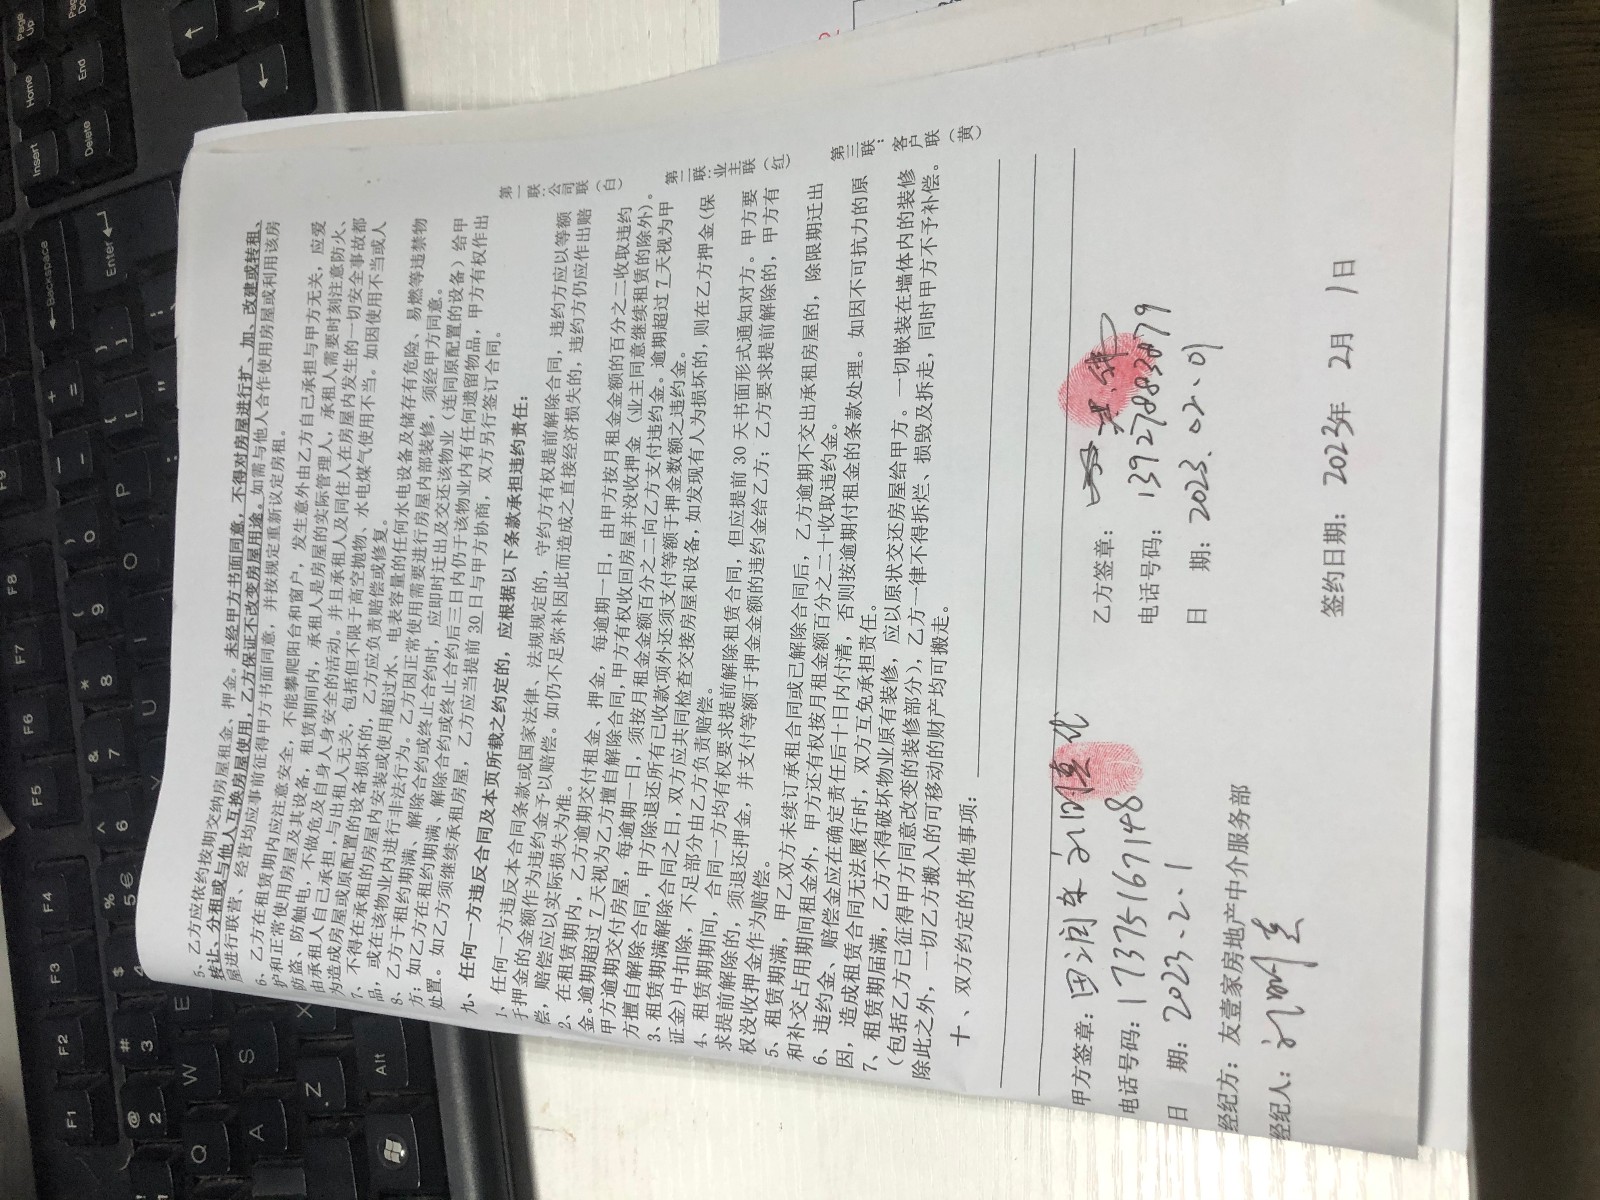 5、乙方应依约按期交纳房屋租金、押金。未经甲方书面同意，不得对房屋进行扩、加、改建或转租、
转让、分租或与他人互换房屋使用，乙方保证不改变房屋用途。如需与他人合作使用房屋或利用该房
屋进行联营、经营均应事前征得甲方书面同意，并按规定重新议定房租。
6、乙方在租赁期内应注意安全，不能攀爬阳台和窗户，发生意外由乙方自己承担与甲方无关，应爱
护和正常使用房屋及其设备，租赁期间内，承租人是房屋的实际管理人，承租人需要时刻注意防火、
防盗、防触电，不做危及自身人身安全的活动。并且承租人及同住人在房屋内发生的一切安全事故都
由承租人自己承担，与出租人无关，包括但不限于高空抛物、水电煤气使用不当。如因使用不当或人
为造成房屋或原配置的设备损坏的，乙方应负责赔偿或修复。
7、不得在承租的房屋内安装或使用超过水、电表容量的任何水电设备及储存有危险、易燃等违禁物
品，或在该物业内进行非法行为。乙方因正常使用需要进行房屋内部装修，须经甲方同意。
8、乙方于租约期满、解除合约或终止合约时，应即时迁出及交还该物业（连同原配置的设备）给甲
方；如乙方在租约期满、解除合约或终止合约后三日内仍于该物业内有任何遗留物品，甲方有权作出
处置。如乙方须继续承租房屋，乙方应当提前 30 日与甲方协商，双方另行签订合同。
九、任何一方违反合同及本页所载之约定的，应根据以下条款承担违约责任：
1、任何一方违反本合同条款或国家法律、法规规定的，守约方有权提前解除合同，违约方应以等额
于押金的金额作为违约金予以赔偿。如仍不足弥补因此而造成之直接经济损失的，违约方仍应作出赔
偿，赔偿应以实际损失为准。
2、在租赁期内，乙方逾期交付租金、押金，每逾期一日，由甲方按月租金金额的百分之二收取违约
金。逾期超过 7 天视为乙方擅自解除合同，甲方有权收回房屋并没收押金（业主同意继续租赁的除外）。
甲方逾期交付房屋，每逾期一日，须按月租金金额百分之二向乙方支付违约金。逾期超过 7 天视为甲
方擅自解除合同，甲方除退还所有已收款项外还须支付等额于押金数额之违约金。
3、租赁期满解除合同之日，双方应共同检查交接房屋和设备，如发现有人为损坏的，则在乙方押金（保
证金）中扣除，不足部分由乙方负责赔偿。
4、租赁期期间，合同一方均有权要求提前解除租赁合同，但应提前 30 天书面形式通知对方。甲方要
求提前解除的，须退还押金，并支付等额于押金金额的违约金给乙方；乙方要求提前解除的，甲方有
权没收押金作为赔偿。
5、租赁期满，甲乙双方未续订承租合同或已解除合同后，乙方逾期不交出承租房屋的，除限期迁出
和补交占用期间租金外，甲方还有权按月租金额百分之二十收取违约金。
6、违约金、赔偿金应在确定责任后十日内付清，否则按逾期付租金的条款处理。如因不可抗力的原
因，造成租赁合同无法履行时，双方互免承担责任。
7、租赁期届满，乙方不得破坏物业原有装修，应以原状交还房屋给甲方。一切嵌装在墙体内的装修
（包括乙方已征得甲方同意改变的装修部分），乙方一律不得拆烂、损毁及拆走，同时甲方不予补偿。
除此之外，一切乙方搬入的可移动的财产均可搬走。
十、双方约定的其他事项：
第一联：公司联（白）
第二联：业主联（红）
第三联：客户联（黄）
甲方签章：田润东
电话号码：17375167148
日 期：2023.2.1
乙方签章：
电话号码：13927883079
日 期：2023.02.01
经纪方：友壹家房地产中介服务部
经纪人：
签约日期：2023年 2月 1日
Page Up
Home
End
Insert
Delete
Backspace
Enter
F1
F2
F3
F4
F5
F6
F7
F8
F9
@ 2
# 3
$ 4
% 5 €
^ 6
& 7
* 8
( 9
) 0
Q
W
E
U
O
P
A
S
Z
X
Alt